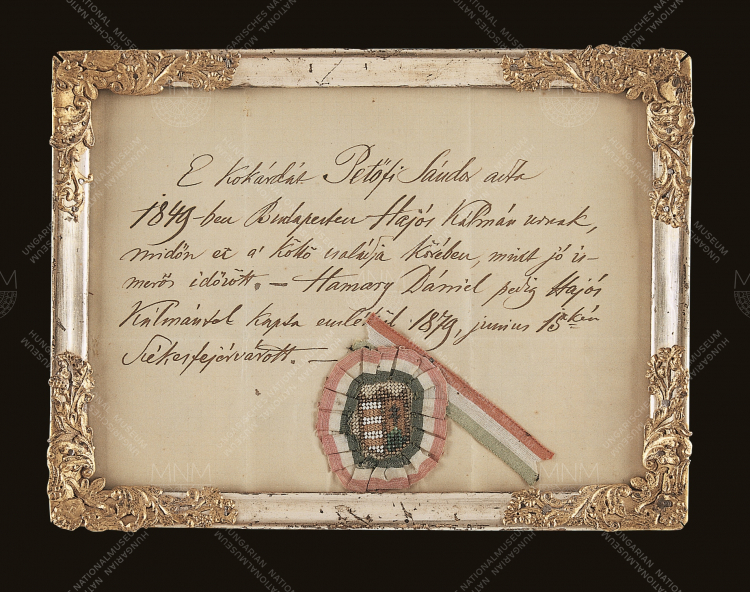 E kokárdát Petőfi Sándor adta
1849-ben Budapesten Hajós Kálmán urnak,
midőn ez a' költő családja körében, mint jó is-
merős időzött. – Hamary Dániel pedig Hajós
Kálmántol kapta emlékül 1879, junius 13-kán
Székesfejérvárott. –
MNM
MNM
HUNGARIAN NATIONAL MUSEUM
UNGARISCHES NATIONALMUSEUM